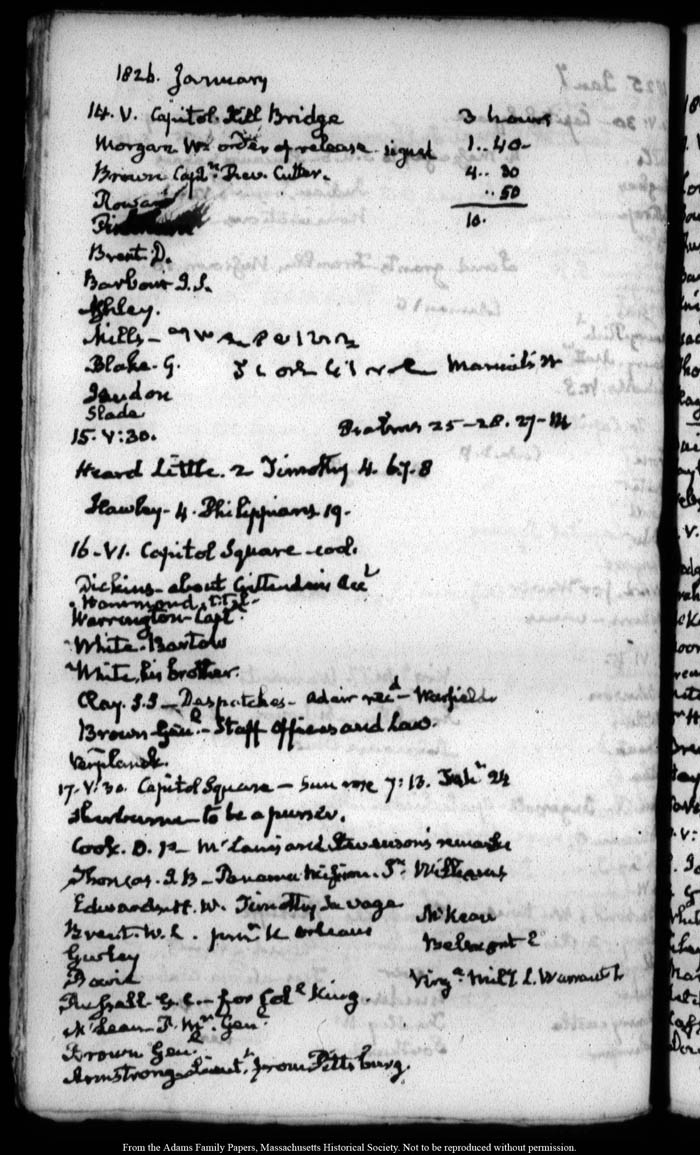 1826. January
14. V. Capitol Hill Bridge 3 hours
Morgan Wm order of release signed 1..40-
Brown Captn. Rev. Cutter. 4.. 30
Rowan ..50
10.
Brent. D.
Barbour J. S.
Ashley.
Mills-
Blake. G.
Slade
15. V:30. Psalms 25-28. 27-
Heard Little. 2 Timothy 4. 6.7.8
Hawley- 4. Philippians. 19.
16-VI. Capitol Square -cod.
Dickins- about
Hammond.
Warrington- Captn.
White. Bartow
White, his brother.
Clay. S.S- Despatches- Adair recd- Warfield
Brown- Genl- Staff Officers and Law.
Verplanck.
17. V:30. Capitol Square- Sun rose 7:13. 24
Sherburne- to be a purser.
Cook. D. P- McLane's and Stevenson's remarks
Thomas. J. B- Panama Mission. Williams
Edwards. W. Timothy Savage
Brent. W. L. Orleans McKean
Gurley Belmont E
David Virga Mily L. Warrants
Russell. G. E.- for Coll King.
McLean- P. Mr. Genl.
Brown Genl.
Armstrong- Lieut. from Pittsburg.
From the Adams Family Papers, Massachusetts Historical Society. Not to be reproduced without permission.